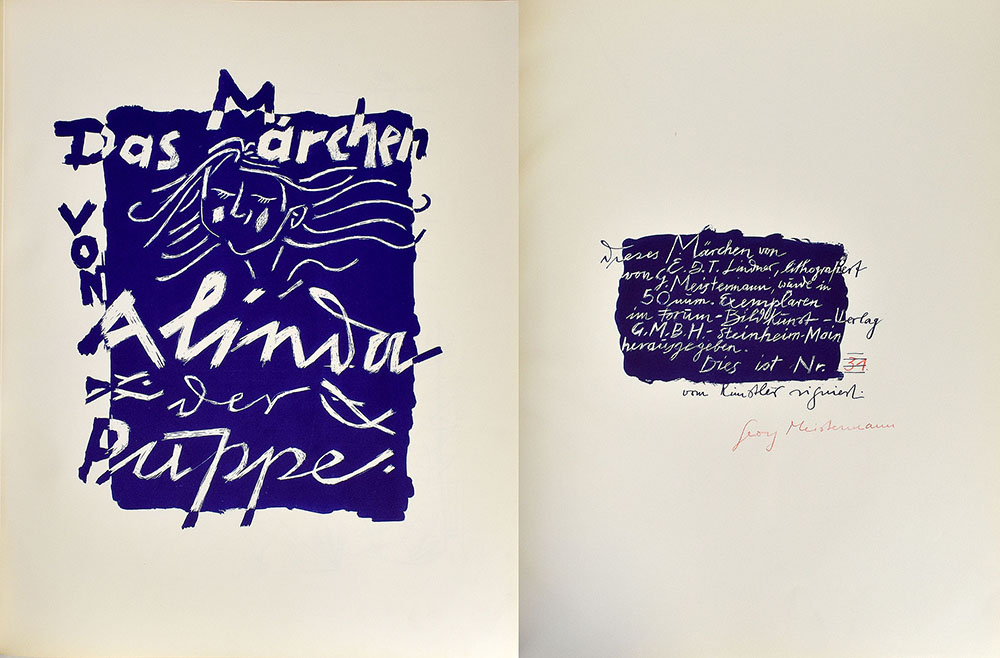 Das Märchen
von
Alinda
der
Puppe.
Dieses Märchen von
von E.D.T. Lindner, lithografiert
G. Meistermann, wurde in
50 num. Exemplaren
im Forum-Bildkunst-Verlag
G.M.B.H-Steinheim-Main
herausgegeben.
Dies ist Nr. 34
vom Künstler signiert.
Georg Meistermann